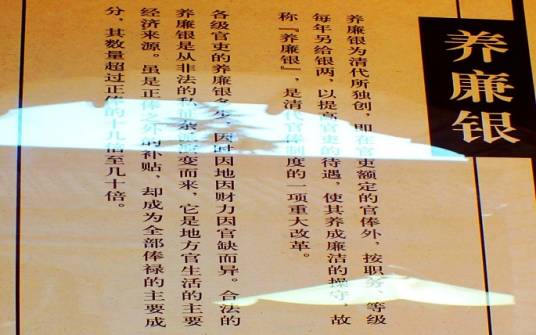 养廉银
养廉银为清代所独创，即在官吏额定的官俸外，按职务、等级
每年另给银两，以提高官吏的待遇，使其养成廉洁的操守，故
称『养廉银』，是清代官俸制度的一项重大改革。
各级官吏的养廉银多少，因时因地因财力因官缺而异。合法的
养廉银是从非法的私杂变而来，它是地方官生活的主要
经济来源。虽是正俸之外的补贴，却成为全部俸禄的主要成
分，其数量超过正俸的十几倍至几十倍。